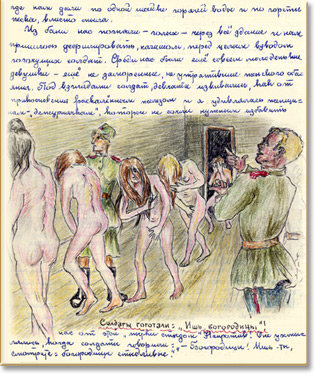 где нам дали по одной шайке горячей воды и по горстке
песка, вместо мыла.
Из бани нас погнали – голых – через всё здание и нам
пришлось дефилировать, нагишом, перед целым взводом
гогочущих солдат. Среди нас были ещё совсем молоденькие
девушки – ещё не заморенные, не утратившие женского оба-
яния. Под взглядами солдат девчата извивались, как от
прикосновения раскалённым железом и я удивлялась женщи-
нам-дежурнячкам, которые не сочли нужным избавить
Солдаты гоготали: „Ишь, богородицы"!
нас от этой,
когда солдаты говорили: – богородицы! Ишь ты,
смотрите – богородицы стыдливые